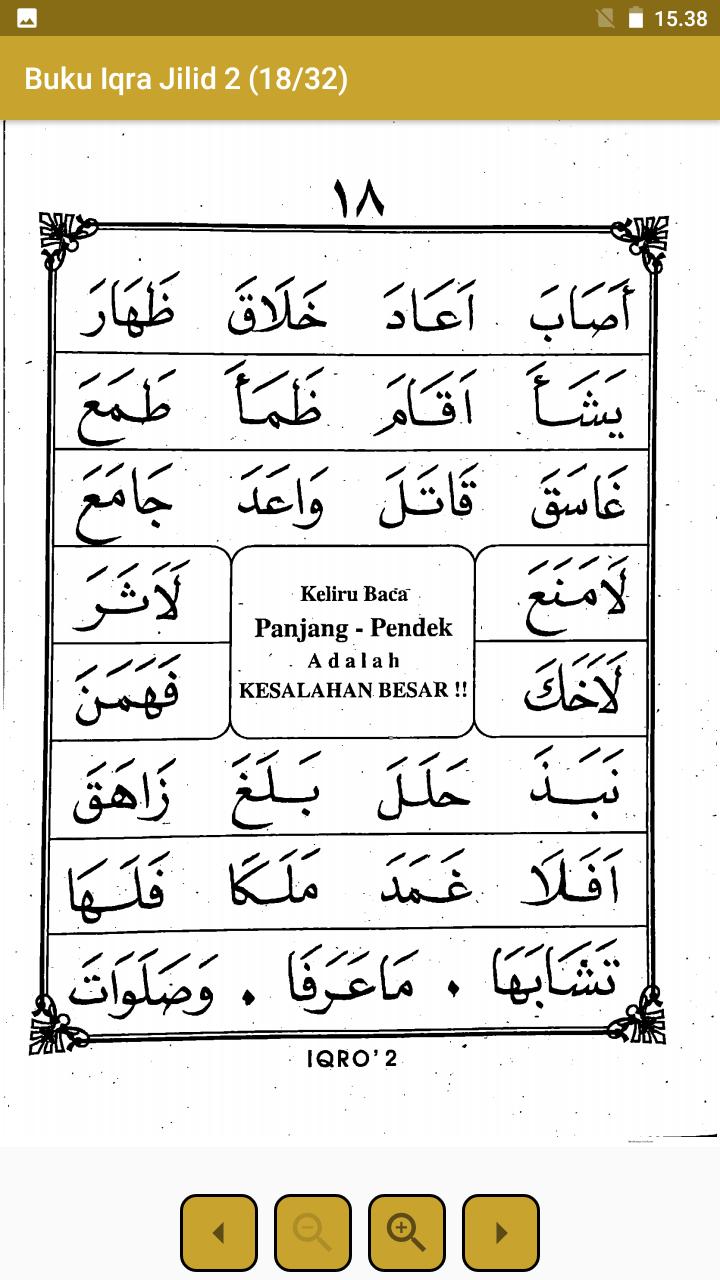 15.38
Buku Iqra Jilid 2 (18/32)
١٨
أَصَابَ اَعَادَ خَلَاقَ ظَهَارَ
يَشَأَ اَقَامَ ظَمَأَ طَمَعَ
غَاسَقَ قَاتَلَ وَاعَدَ جَامَعَ
لَامَنَعَ لَاثَرَ
Keliru Baca
Panjang - Pendek
Adalah
KESALAHAN BESAR !!
لَاخَكَ فَهَمَنَ
نَبَذَ حَلَلَ بَلَغَ زَاهَقَ
اَفَلَا غَمَدَ مَلَكَا فَلَهَا
تَشَابَهَا . مَاعَرَفَا . وَصَلَوَاتَ
IQRO' 2